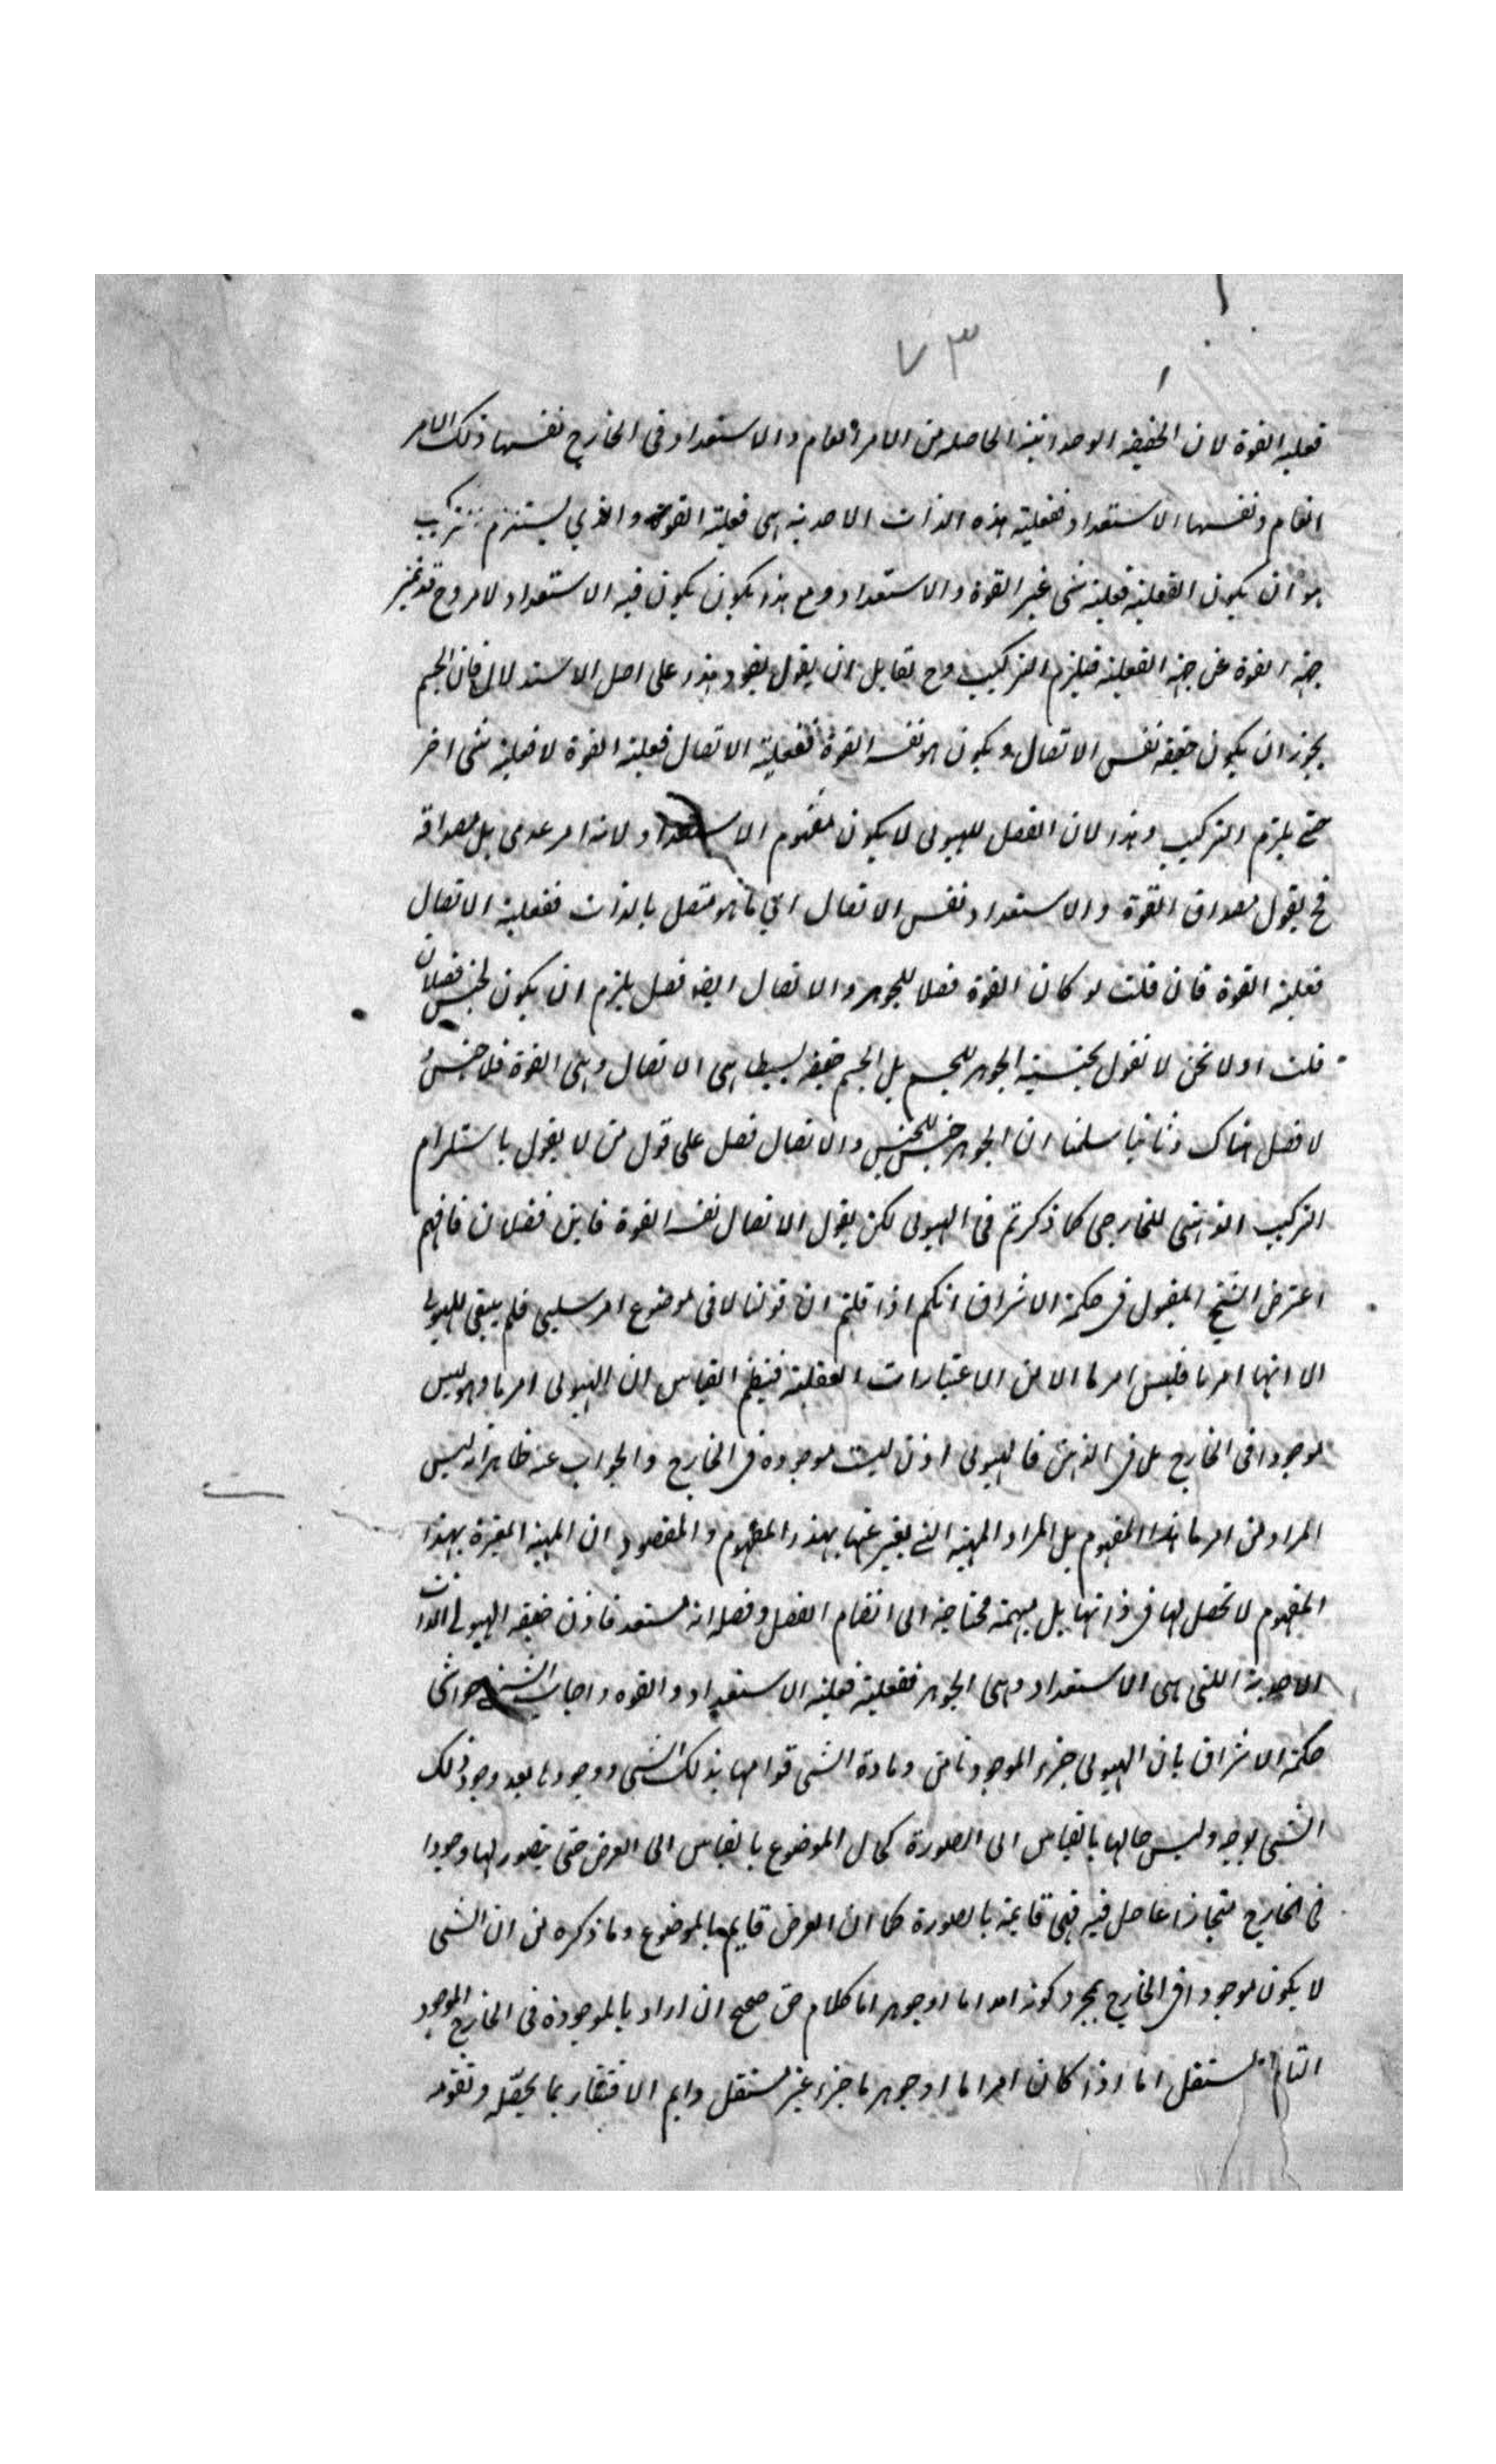 ٧٣
فعلية القوة لان الحقيقة الوحدانية الحاصلة من الامر العام والاستعداد فى الخارج نفسها ذلك الامر
العام ونفسها الاستعداد ففعلية هذه الذات الاحدية هى فعلية القوة والذي يستلزم التركيب
هو ان يكون الفعلية فعلية شى غير القوة والاستعداد ومع هذا يكون يكون فيه الاستعداد لامر وح قد تميز
جهة القوة عن جهة الفعلية فيلزم التركيب وح لقايل ان يقول يعود هذا على اصل الاستدلال فان الجسم
يجوز ان يكون حقيقة نفس الاتصال ويكون هو نفس القوة ففعلية الاتصال فعلية القوة لا فعلية شى اخر
حتى يلزم التركيب وهذا لان الفصل للهيولى لا يكون مفهوم الاستعداد لانه امر عدمى بل مصداقه
فح يقول مصداق القوة والاستعداد نفس الاتصال اي ما هو متصل بالذات ففعلية الاتصال
فعلية القوة فان قلت لو كان القوة فصلا للجوهر والاتصال ايضا فصل يلزم ان يكون لجنس فصلان
قلت اولا نحن لا نقول بجنسية الجوهر للجسم بل الجسم حقيقة بسيطة هى الاتصال وهى القوة فلا جنس و
لا فصل هناك وثانيا سلمنا ان الجوهر جنس للجنس والاتصال فصل على قول من لا يقول باستلزام
التركيب الذهنى للخارجى كما ذكرتم فى الهيولى لكن يقول الاتصال نفس القوة فاين فصلان فافهم
اعترض الشيخ المقبول فى حكمة الاشراق انكم اذا قلتم ان قولنا لا فى موضوع امر سلبي فلم يبقى للهيولى
الا انها امر ما فليس امر ما الا من الاعتبارات العقلية فينظم القياس ان الهيولى امر ما وهو ليس
موجودا فى الخارج بل فى الذهن فالهيولى اذن ليست موجودة فى الخارج والجواب عنه ظاهر انه ليس
المراد من امر ما هذا المفهوم بل المراد المهية التي يعبر عنها بهذا المفهوم والمقصود ان المهية المعبرة بهذا
المفهوم لا تحصل لها فى ذاتها بل مبهمة محتاجة الى انضمام الفصل وفصله انه مستعد فاذن حقيقة الهيولى الذات
الاحدية اللتى هى الاستعداد وهى الجوهر ففعلية فعلية الاستعداد والقوه واجاب الشيخ حواشى
حكمة الاشراق بان الهيولى جزء الموجود ومادة الشى قوامها بذلك الشى ووجودها بعد وجود ذلك
الشى بوجه وليس حالها بالقياس الى الصورة كحال الموضوع بالقياس الى العرض حتى يتصور لها وجودا
فى الخارج منحازا عما حل فيه فهى قايمة بالصورة كما ان العرض قايم بالموضوع وما ذكره من ان الشى
لا يكون موجودا فى الخارج بمجرد كونه امرا ما او جوهرا ما كلام حق صحيح ان اراد بالموجودة فى الخارج الموجود
التام المستقل اما اذا كان امرا ما او جوهر ما جزء غير مستقل دايم الافتقار بما يحصله وتقومه